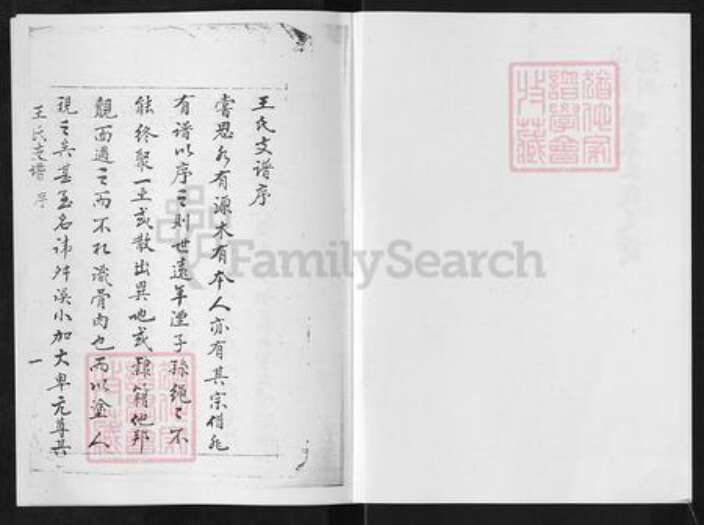 王氏支谱序
尝思水有源木有本人亦有其宗借非
有谱以序之则世远年湮子孙绳之不
能终聚一土或散出异地或隶籍他邦
觌面遇之而不札识骨肉也而以塗人
视之矣甚至名讳舛误小加大卑亢尊其
王氏支谱 序
一
FamilySearch